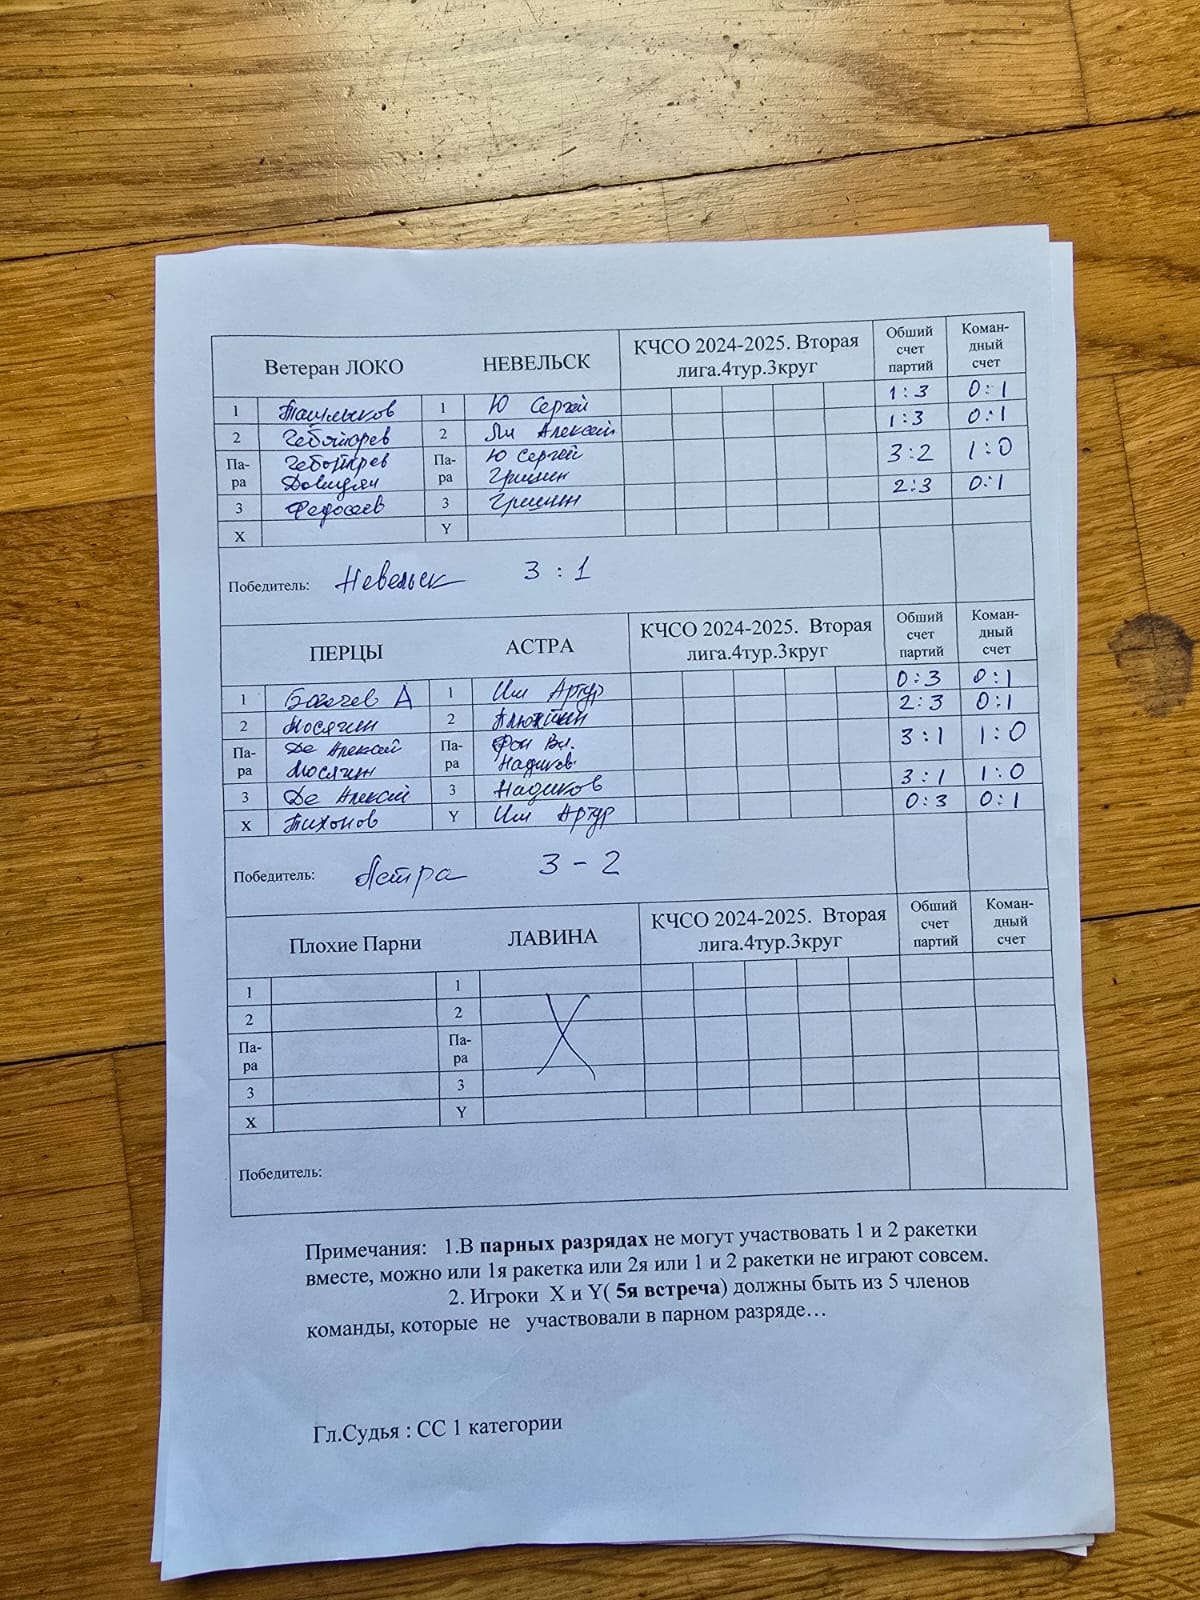 Ветеран ЛОКО НЕВЕЛЬСК КЧСО 2024-2025. Вторая лига.4тур.3круг Обший счет партий Коман-дный счет
1 Ташлыков 1 Ю Сергей 1:3 0:1
2 Чеботарев 2 Ян Алексей 1:3 0:1
Па-ра Чеботарев Па-ра Ю Сергей 3:2 1:0
Давидян Гришин
3 Федосеев 3 Гришин 2:3 0:1
X Y
Победитель: Невельск 3 : 1
ПЕРЦЫ АСТРА КЧСО 2024-2025. Вторая лига.4тур.3круг Обший счет партий Коман-дный счет
1 Богачев А 1 Им Артур 0:3 0:1
2 Мосягин 2 2:3 0:1
Па-ра Де Алексей Па-ра Фон Вл. 3:1 1:0
Мосягин Надиков
3 Де Алексей 3 Надиков 3:1 1:0
X Тихонов Y Им Артур 0:3 0:1
Победитель: Астра 3 - 2
Плохие Парни ЛАВИНА КЧСО 2024-2025. Вторая лига.4тур.3круг Обший счет партий Коман-дный счет
1 1
2 2
Па-ра Па-ра
3 3
X Y
Победитель:
Примечания: 1.В парных разрядах не могут участвовать 1 и 2 ракетки
вместе, можно или 1я ракетка или 2я или 1 и 2 ракетки не играют совсем.
2. Игроки X и Y( 5я встреча) должны быть из 5 членов
команды, которые не участвовали в парном разряде…
Гл.Судья : СС 1 категории